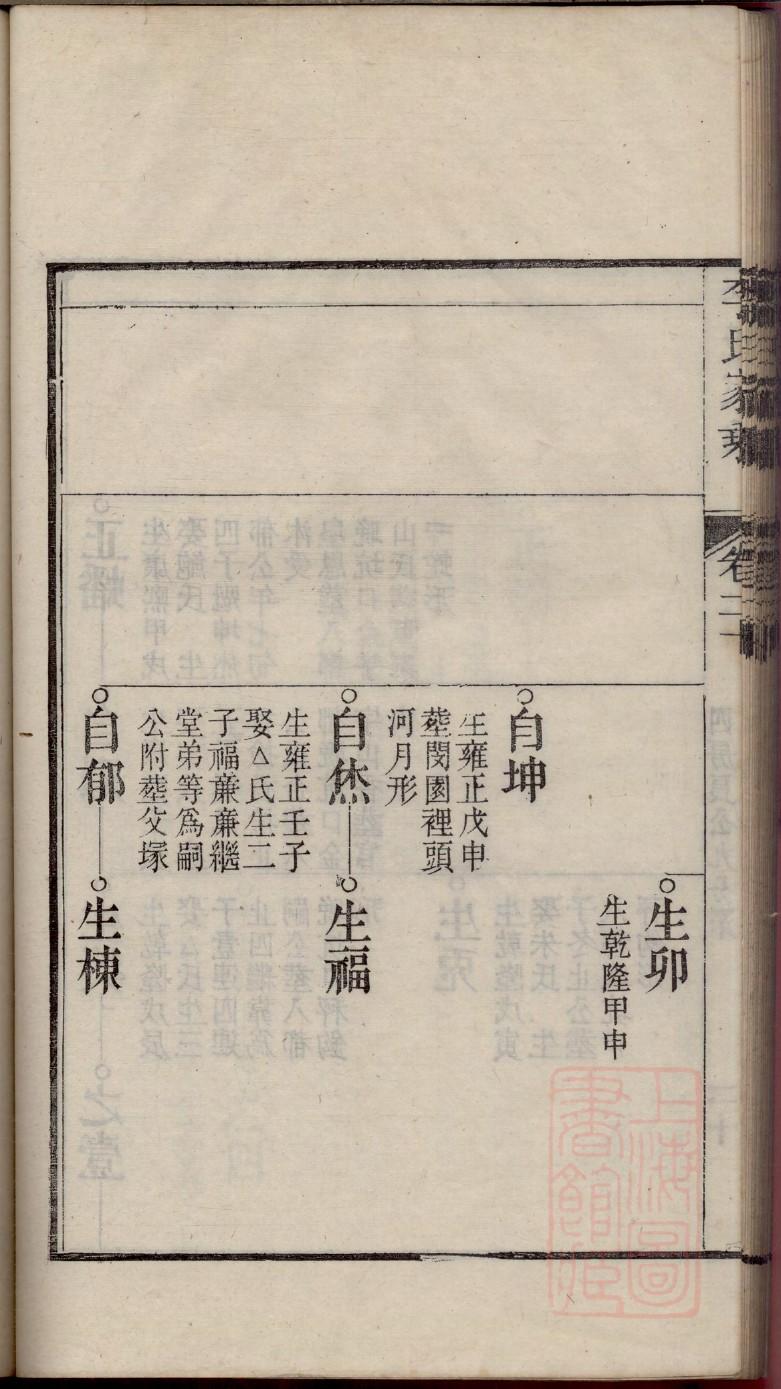 李氏家乘
卷二十
生卯
生乾隆甲申
自坤
生雍正戊申
塟閔園裡頭
河月形
自烋
生福
生雍正壬子
娶△氏生二
子福蔴蔴繼
堂弟等爲嗣
公附塟父塚
自郁
生棟
上海圖
書館藏